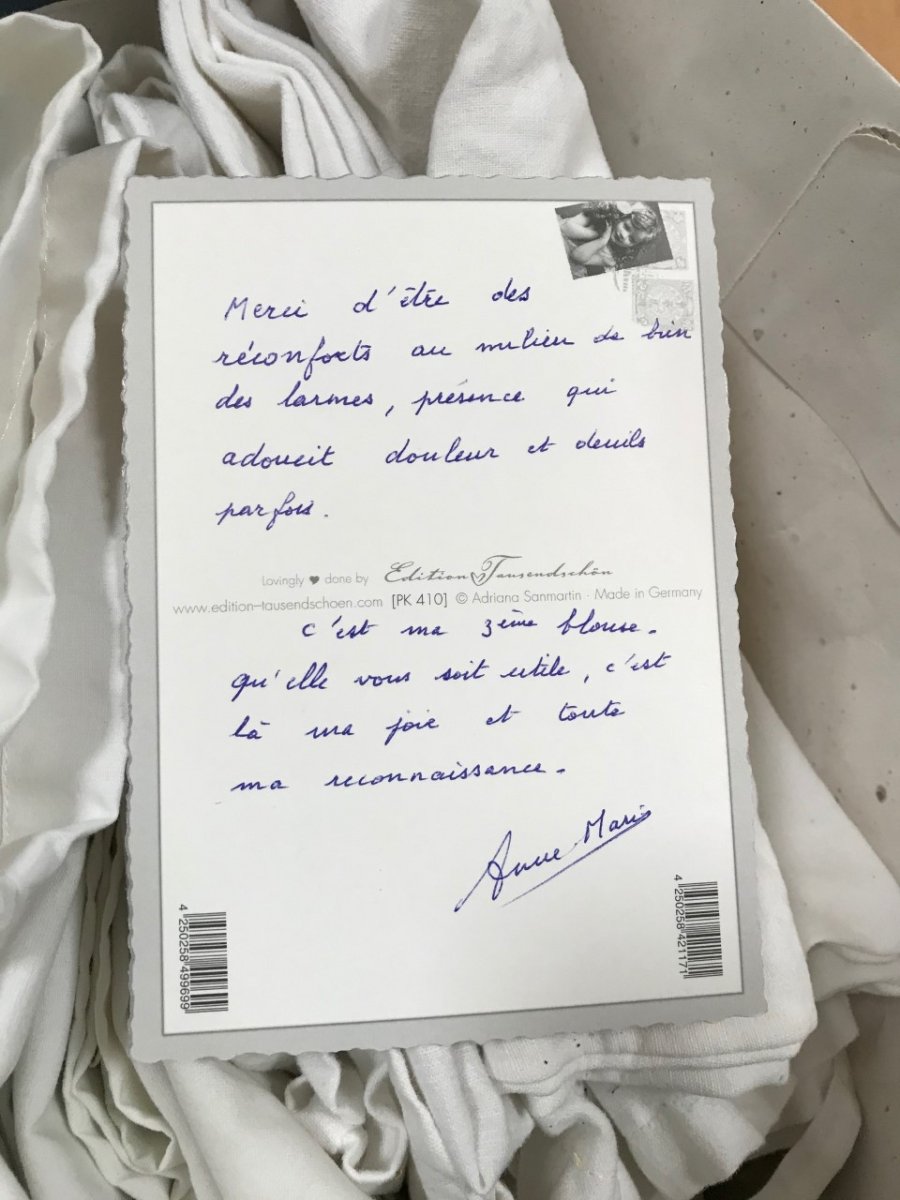 Merci d'être des
réconforts au milieu de bien
des larmes, présence qui
adoucit douleur et deuils
parfois.
Lovingly ♥ done by Edition Tausendschön
www.edition-tausendschoen.com [PK 410] © Adriana Sanmartin · Made in Germany
c'est ma 3ème blouse.
qu'elle vous soit utile, c'est
là ma joie et toute
ma reconnaissance.
Anne Marie
4 250258 499699
4 250258 421171